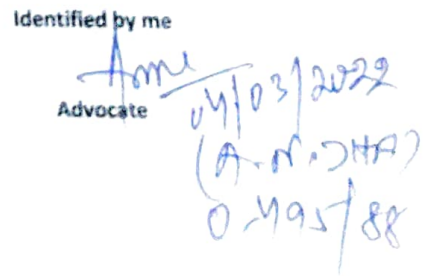 Identified by me
Advocate
04/03/2022
(A.N. JHA)
D-495/88